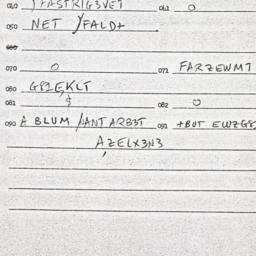 040 )FASTRIG3VET 041 0
050 NET )FALD+
060
070 0 071 FARZEWM7
080 G81EKLT
081 $ 082 0
090 A BLUM /ANTARB3T 091 +BUT EWZG8
AZELX3N3